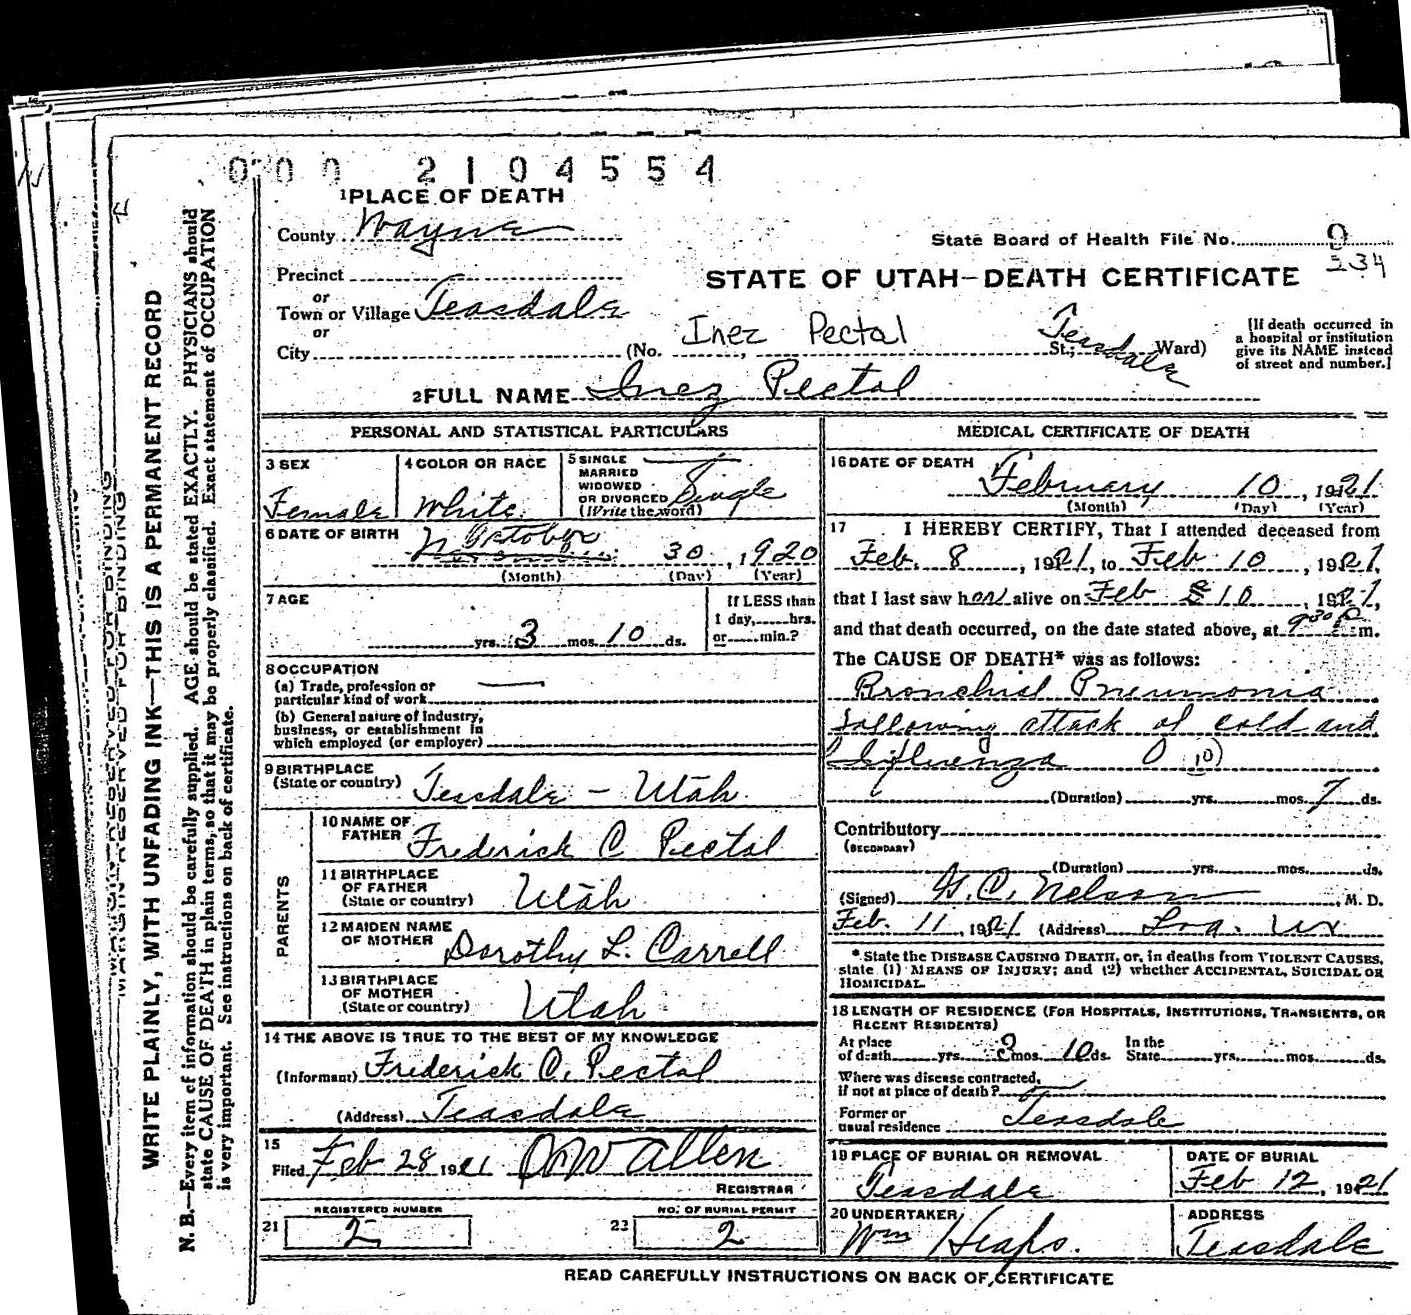 000 2104554
1 PLACE OF DEATH
County Wayne
State Board of Health File No. 9
234
Precinct
STATE OF UTAH—DEATH CERTIFICATE
or
Town or Village Teasdale
or
City (No. Inez Pectal St.; Teasdale Ward)
[If death occurred in
a hospital or institution
give its NAME instead
of street and number.]
2 FULL NAME Inez Pectol
PERSONAL AND STATISTICAL PARTICULARS
3 SEX
Female
4 COLOR OR RACE
White
5 SINGLE
MARRIED
WIDOWED
OR DIVORCED Single
(Write the word)
6 DATE OF BIRTH October 30, 1920
(Month) (Day) (Year)
7 AGE
yrs. 3 mos. 10 ds.
If LESS than
1 day, hrs.
or min.?
8 OCCUPATION
(a) Trade, profession or
particular kind of work
(b) General nature of industry,
business, or establishment in
which employed (or employer)
9 BIRTHPLACE
(State or country) Teasdale - Utah
PARENTS
10 NAME OF
FATHER Frederick C Pectol
11 BIRTHPLACE
OF FATHER
(State or country) Utah
12 MAIDEN NAME
OF MOTHER Dorothy L. Carrell
13 BIRTHPLACE
OF MOTHER
(State or country) Utah
14 THE ABOVE IS TRUE TO THE BEST OF MY KNOWLEDGE
(Informant) Frederick C. Pectol
(Address) Teasdale
15
Filed Feb 28 1921 Allen
REGISTRAR
21 REGISTERED NUMBER
2
22 NO. OF BURIAL PERMIT
2
MEDICAL CERTIFICATE OF DEATH
16 DATE OF DEATH
February 10, 1921
(Month) (Day) (Year)
17 I HEREBY CERTIFY, That I attended deceased from
Feb. 8, 1921, to Feb 10, 1921,
that I last saw her alive on Feb 10, 1921,
and that death occurred, on the date stated above, at 9 30 P m.
The CAUSE OF DEATH* was as follows:
Bronchial Pneumonia
following attack of cold and
Influenza 10
(Duration) yrs. mos. 7 ds.
Contributory
(SECONDARY)
(Duration) yrs. mos. ds.
(Signed) Nelson, M. D.
Feb. 11, 1921 (Address) Loa. Ut
* State the DISEASE CAUSING DEATH, or, in deaths from VIOLENT CAUSES,
state (1) MEANS OF INJURY; and (2) whether ACCIDENTAL, SUICIDAL OR
HOMICIDAL.
18 LENGTH OF RESIDENCE (FOR HOSPITALS, INSTITUTIONS, TRANSIENTS, OR
RECENT RESIDENTS)
At place
of death yrs. 3 mos. 10 ds.
In the
State yrs. mos. ds.
Where was disease contracted,
if not at place of death?
Former or
usual residence Teasdale
19 PLACE OF BURIAL OR REMOVAL
Teasdale
DATE OF BURIAL
Feb 12, 1921
20 UNDERTAKER
Wm Heaps.
ADDRESS
Teasdale
READ CAREFULLY INSTRUCTIONS ON BACK OF CERTIFICATE
MARGIN RESERVED FOR BINDING
WRITE PLAINLY, WITH UNFADING INK—THIS IS A PERMANENT RECORD
N. B.—Every item of information should be carefully supplied. AGE should be stated EXACTLY. PHYSICIANS should
state CAUSE OF DEATH in plain terms, so that it may be properly classified. Exact statement of OCCUPATION
is very important. See instructions on back of certificate.